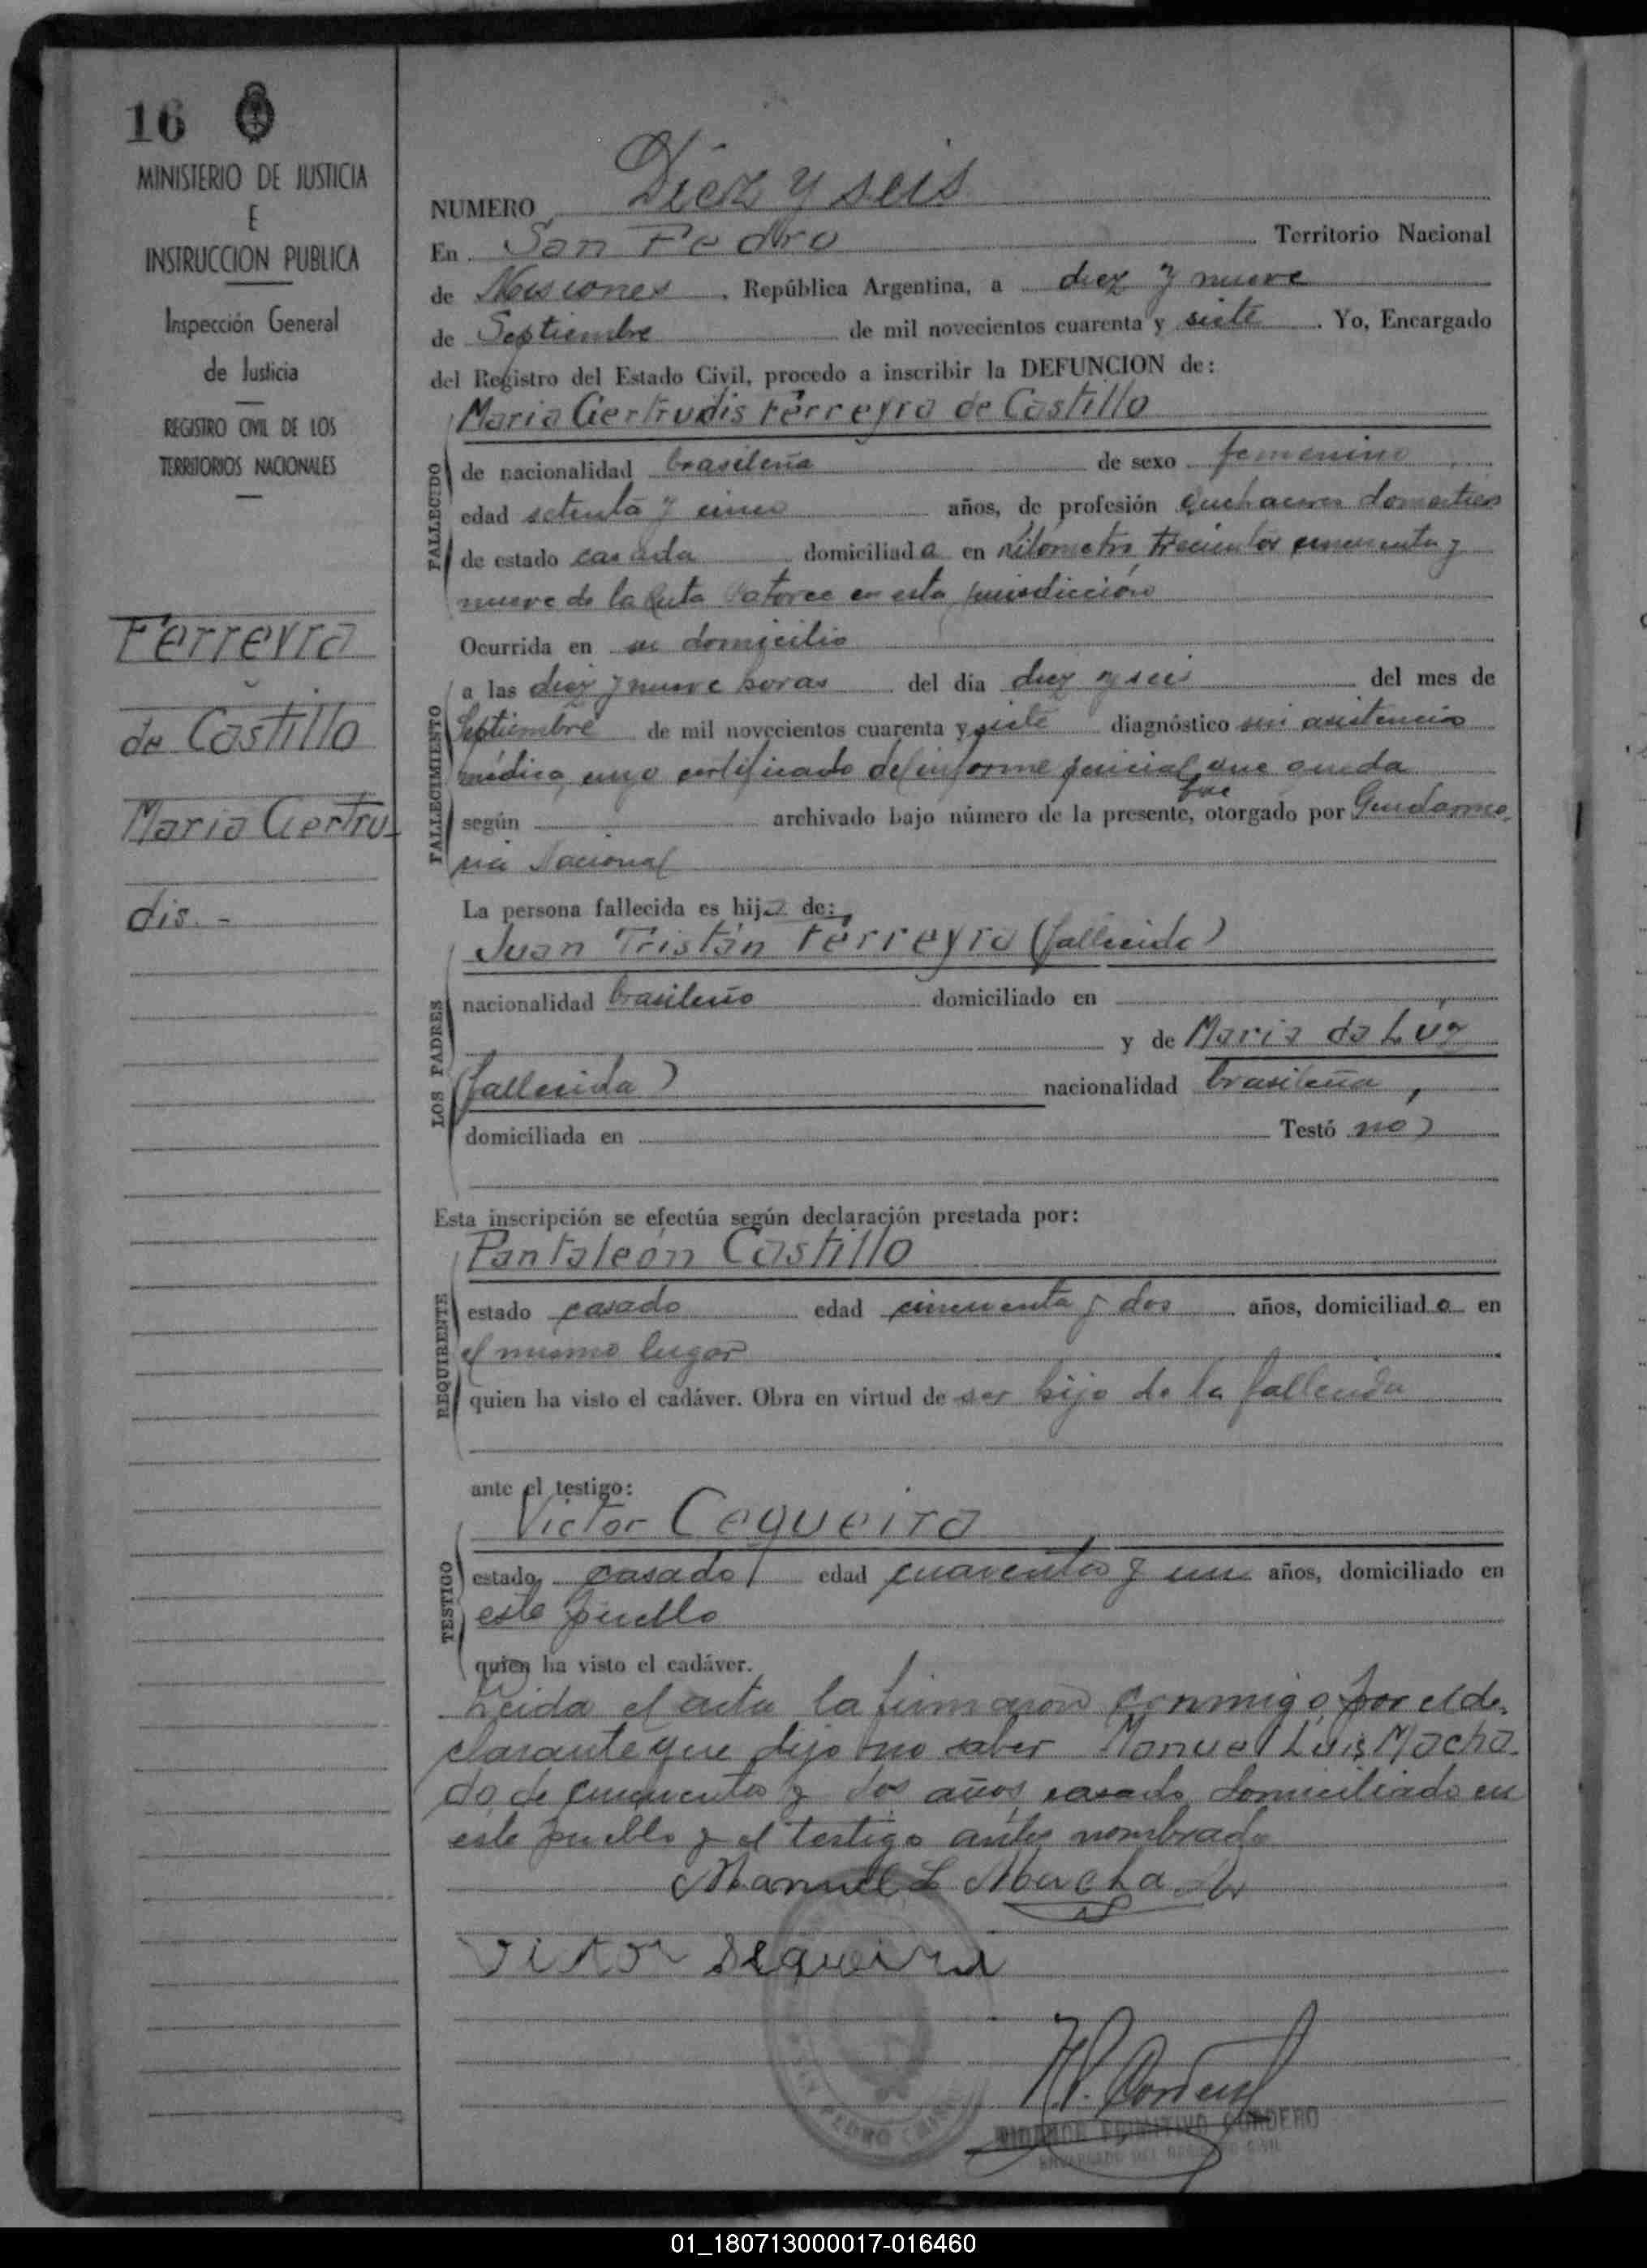 16
MINISTERIO DE JUSTICIA
E
INSTRUCCION PUBLICA
Inspección General
de Justicia
REGISTRO CIVIL DE LOS
TERRITORIOS NACIONALES
Ferreyra
de Castillo
Maria Gertru-
dis.-
NUMERO Diez y seis
En San Pedro Territorio Nacional
de Misiones, República Argentina, a diez y nueve
de Septiembre de mil novecientos cuarenta y siete. Yo, Encargado
del Registro del Estado Civil, procedo a inscribir la DEFUNCION de:
Maria Gertrudis Ferreyra de Castillo
FALLECIDO
de nacionalidad brasileña de sexo femenino
edad setenta y cinco años, de profesión quehaceres domesticos
de estado casada domiciliada en kilometro trecientos cincuenta y
nueve de la Ruta Catorce en esta jurisdicción
Ocurrida en su domicilio
FALLECIMIENTO
a las diez y nueve horas del día diez y seis del mes de
Septiembre de mil novecientos cuarenta y siete diagnóstico sin asistencia
médica, cuyo certificado del informe que queda
según archivado bajo número de la presente, fue otorgado por Gendarme-
ria Nacional
La persona fallecida es hija de:
Juan Tristán Ferreyra (fallecido)
LOS PADRES
nacionalidad brasileño domiciliado en
y de Maria da Luz
(fallecida) nacionalidad brasileña,
domiciliada en Testó no)
Esta inscripción se efectúa según declaración prestada por:
Pantaleón Castillo
REQUIRENTE
estado casado edad cincuenta y dos años, domiciliado en
el mismo lugar
quien ha visto el cadáver. Obra en virtud de ser hijo de la fallecida
ante el testigo:
Victor Cequeira
TESTIGO
estado casado edad cuarenta y un años, domiciliado en
este pueblo
quien ha visto el cadáver.
Leida el acta la firmaron conmigo, por el de-
clarante que dijo no saber Manuel Luis Macha-
do de cincuenta y dos años casado domiciliado en
este pueblo y el testigo antes nombrado
Manuel L Machado
Vitor Sequeira
SAN PEDRO
PRIMITIVO CORDERO
ENCARGADO DEL REGISTRO CIVIL
01_180713000017-016460